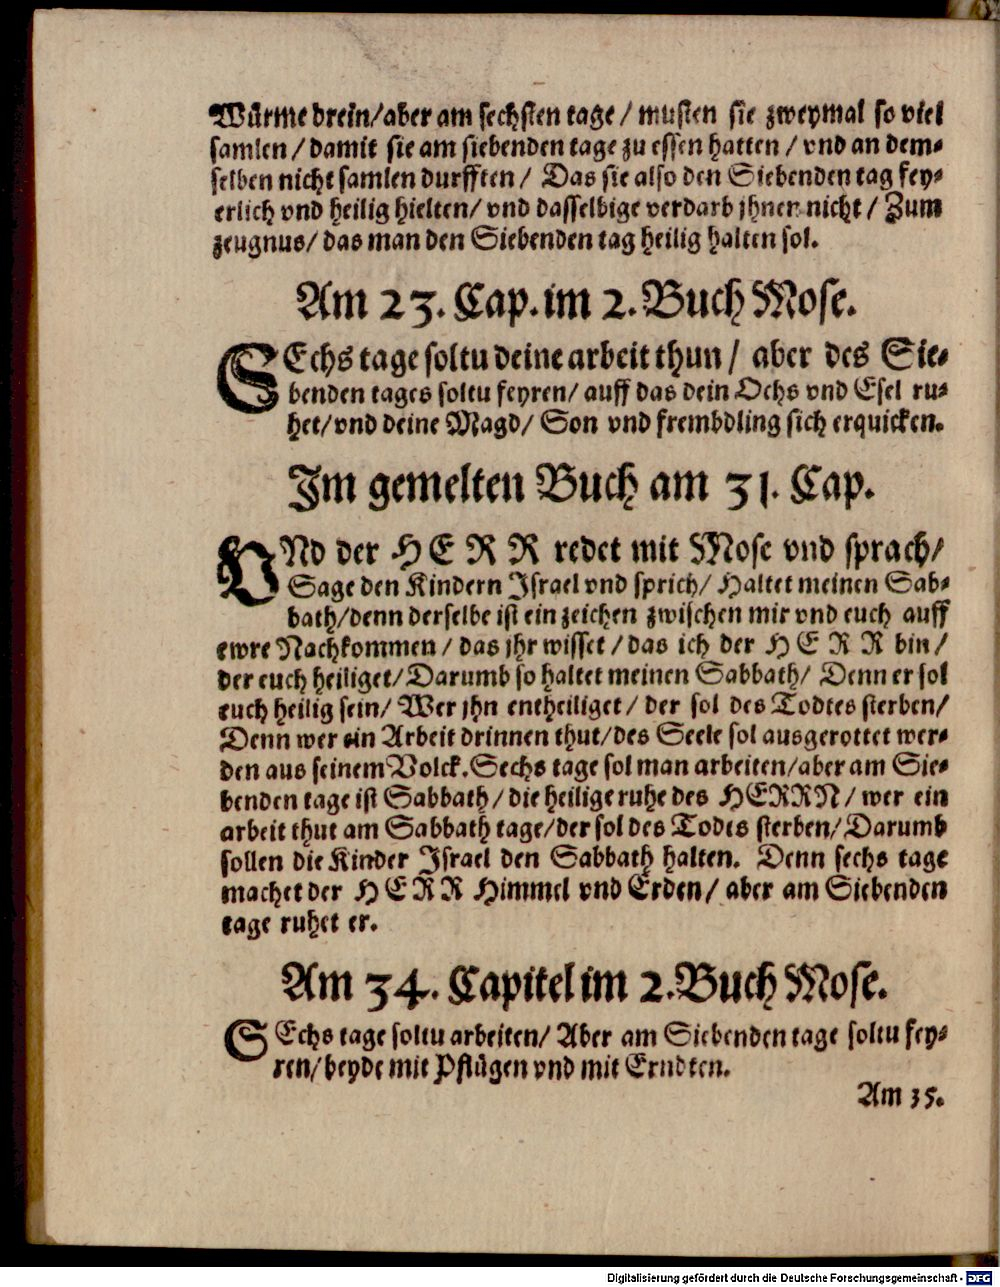 Würme drein/aber am sechsten tage / musten sie zweymal so viel
samlen / damit sie am siebenden tage zu essen hatten / vnd an dem-
selben nicht samlen durfften / Das sie also den Siebenden tag fey-
erlich vnd heilig hielten/ vnd dasselbige verdarb jhnen nicht / Zum
zeugnus/ das man den Siebenden tag heilig halten sol.
Am 23. Cap. im 2. Buch Mose.
SEchs tage soltu deine arbeit thun / aber des Sie-
benden tages soltu feyren/ auff das dein Ochs vnd Esel ru-
het/ vnd deine Magd/ Son vnd frembdling sich erquicken.
Im gemelten Buch am 31. Cap.
VNd der HERR redet mit Mose vnd sprach/
Sage den Kindern Israel vnd sprich/ Haltet meinen Sab-
bath/denn derselbe ist ein zeichen zwischen mir vnd euch auff
ewre Nachkommen / das jhr wisset / das ich der HERR bin /
der euch heiliget/ Darumb so haltet meinen Sabbath/ Denn er sol
euch heilig sein/ Wer jhn entheiliget / der sol des Todtes sterben/
Denn wer ein Arbeit drinnen thut/des Seele sol ausgerottet wer-
den aus seinem Volck. Sechs tage sol man arbeiten/aber am Sie-
benden tage ist Sabbath / die heilige ruhe des HERRN / wer ein
arbeit thut am Sabbath tage/der sol des Todes sterben/ Darumb
sollen die Kinder Israel den Sabbath halten. Denn sechs tage
machet der HERR Himmel vnd Erden/ aber am Siebenden
tage ruhet er.
Am 34. Capitel im 2. Buch Mose.
SEchs tage soltu arbeiten/ Aber am Siebenden tage soltu fey-
ren/ beyde mit Pflügen vnd mit Erndten.
Am 35.
Digitalisierung gefördert durch die Deutsche Forschungsgemeinschaft - DFG